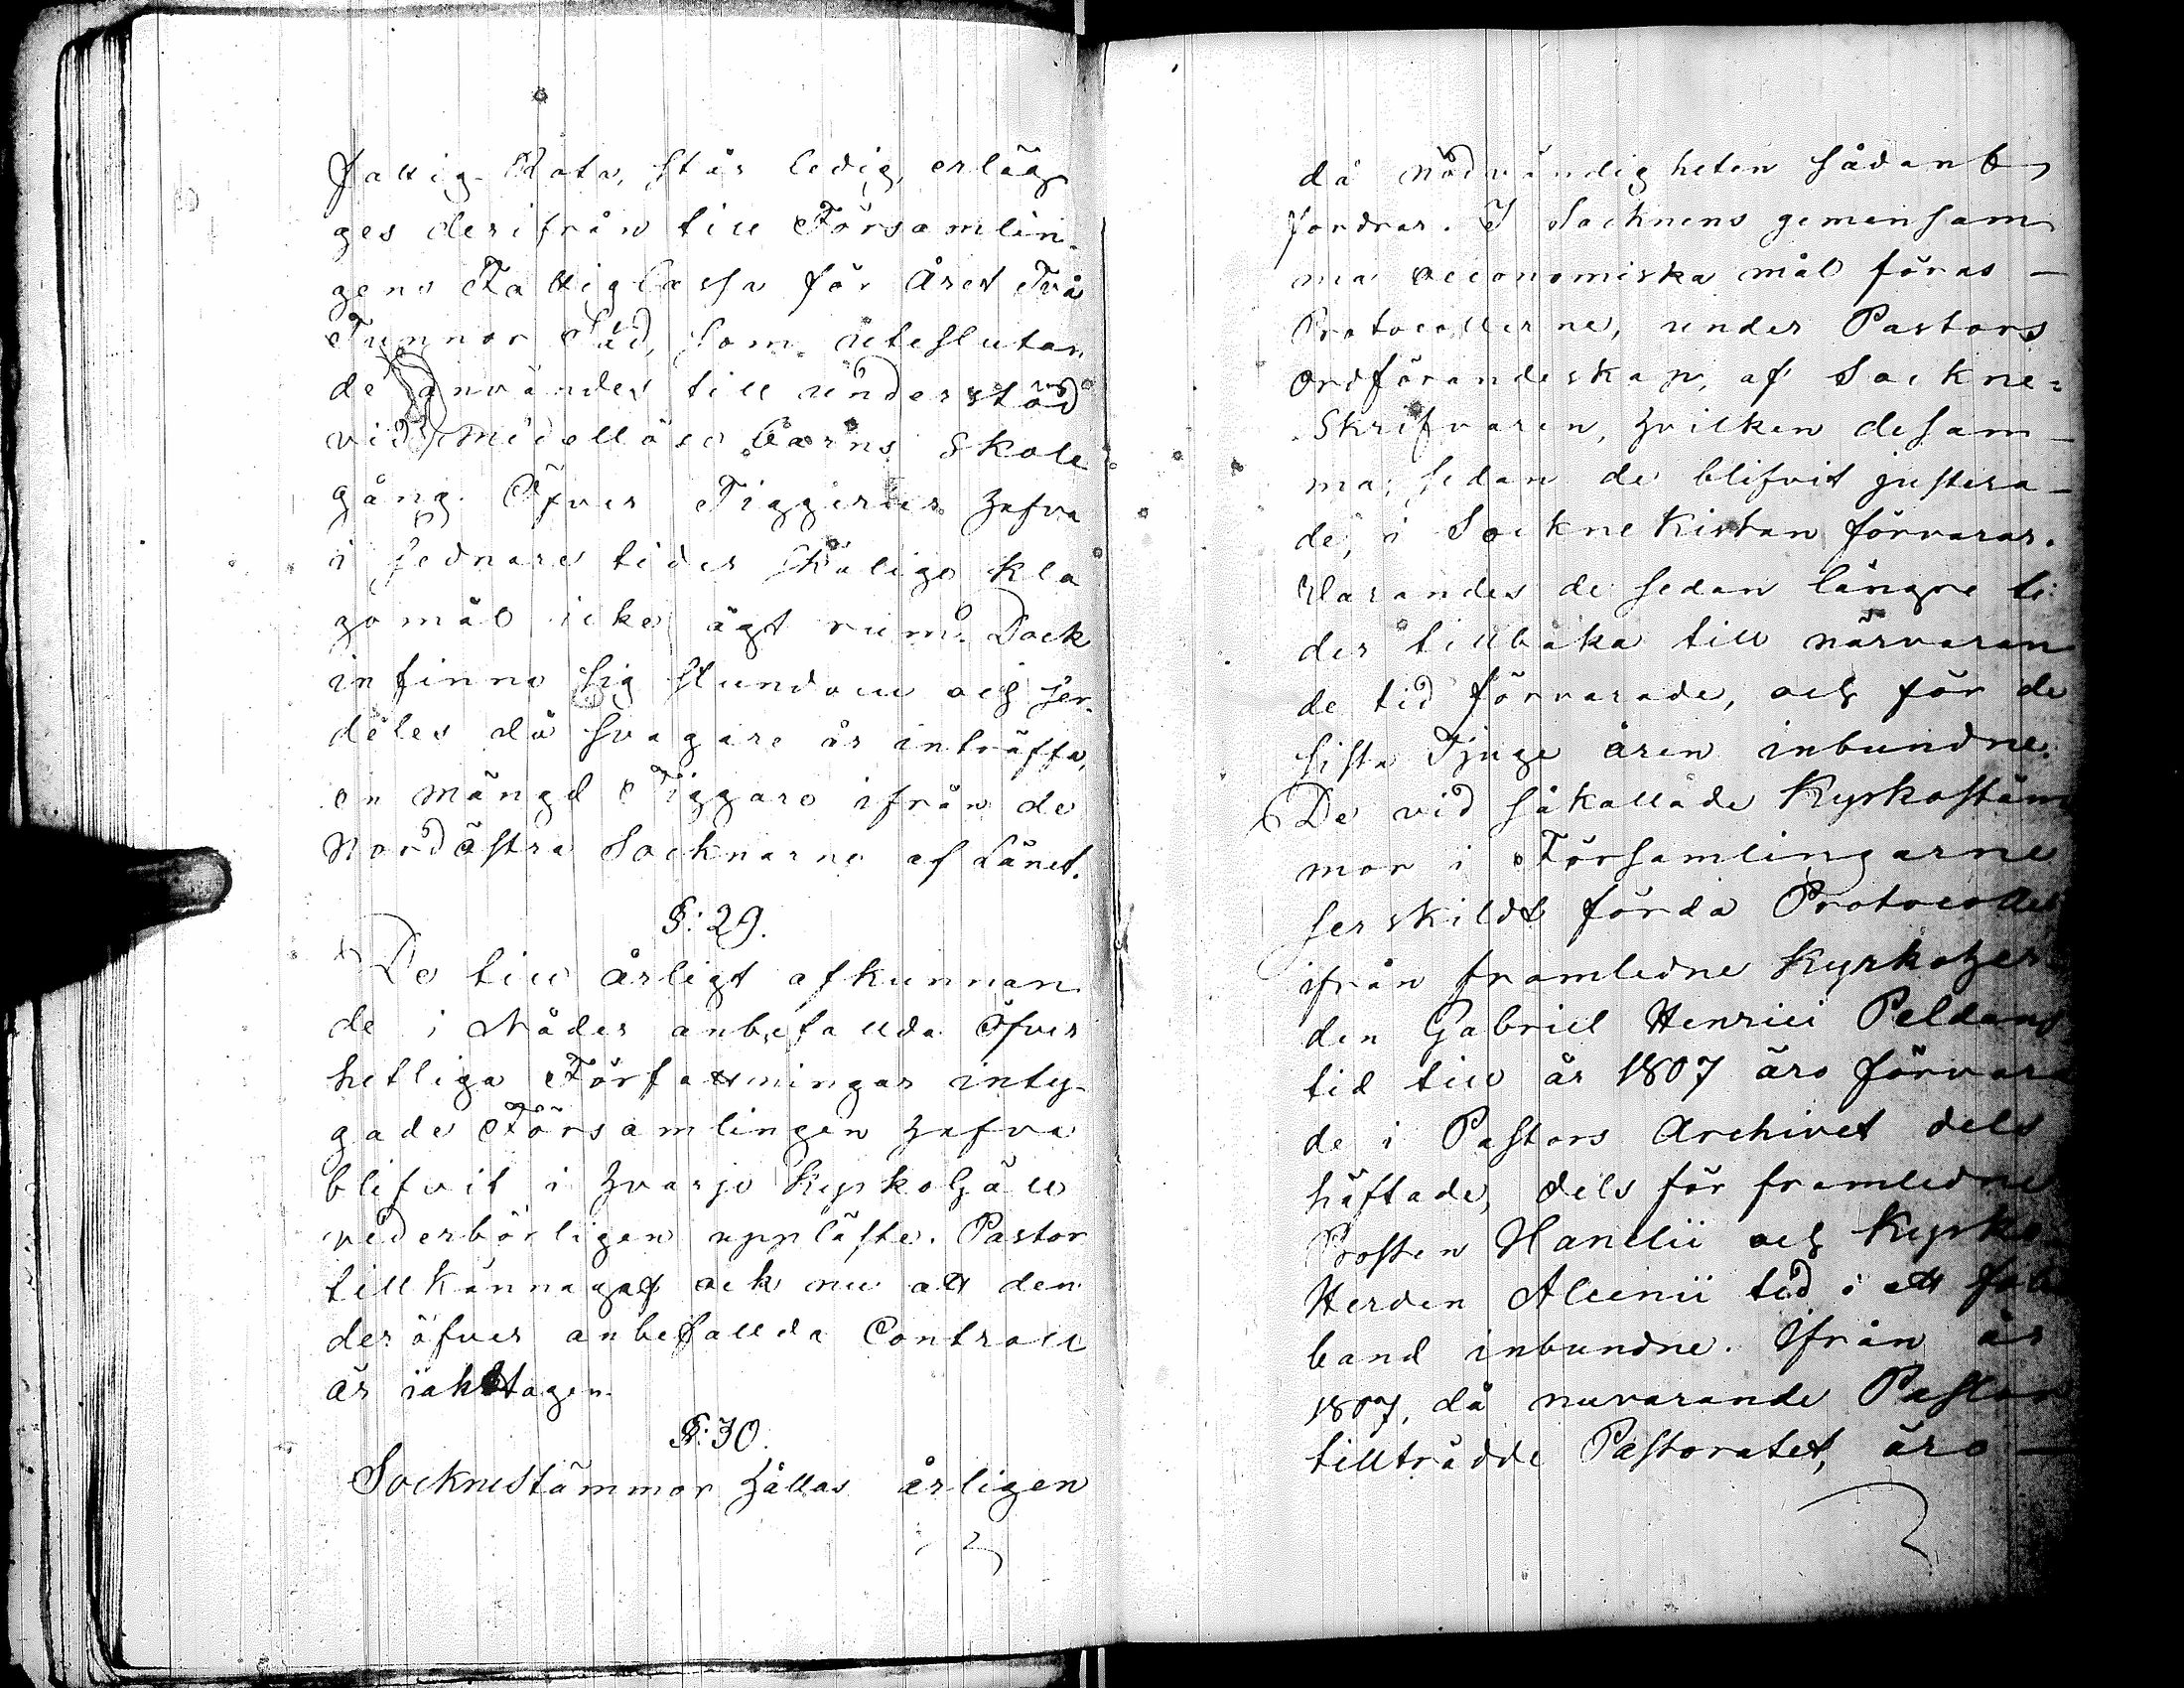 fattig-Rota, står ledig, erläg
ges derifrån till Församlin-
gens Fattig Cassa för Året Två
Tunnor Säd, som uteslutan
de användes till understöd
vid Medellöse Barns Skole
gång. Öfver Tiggerier hafva
i sednare tider skälige kla
gomål icke ägt rum. Dock
infinna sig stundom och ser-
deles då svagare år inträffa,
en mängd Tiggare ifrån de
Nordöstra Socknarne af Länet.
§: 29.
De till årligt afkunnan
de i Nåder anbefallda Öfver
hetliga Författningar inty-
gade Församlingen hafva
blifvit i hvarje Kyrkohjäll
vederbörligen uppläste. Pastor
tillkännagaf ock nu att den
deröfver anbefallda Controll
är iakttagen.
§: 30.
Socknestämmor hållas årligen
då nödvändigheten sådant
fordrar. I Socknens gemensam
ma oeconomiska mål föras —
Protocollerne, under Pastors
Ordförandeskap, af Sockne=
Skrifvaren, hvilken desam-
ma, sedan de blifvit justera-
de, i Sockne Kistan förvarar.
Varandes de sedan längre ti-
der tillbaka till närvaran
de tid förvarade, och för de
sista Tjuge åren inbundne.
De vid såkallade Kyrkostäm
mor i Församlingarne
serskildt förda Protocoller
ifrån framledne Kyrkoher
den Gabriel Henrici Peldans
tid till år 1807 äro förvara
de i Pastors Archivet dels
häftade, dels för framledne
Prosten Hanelii och Kyrko
Herden Alcenii tid i ett
band inbundne. Ifrån år
1807, då nuvarande Pastor
tillträdde Pastoratet, äro —